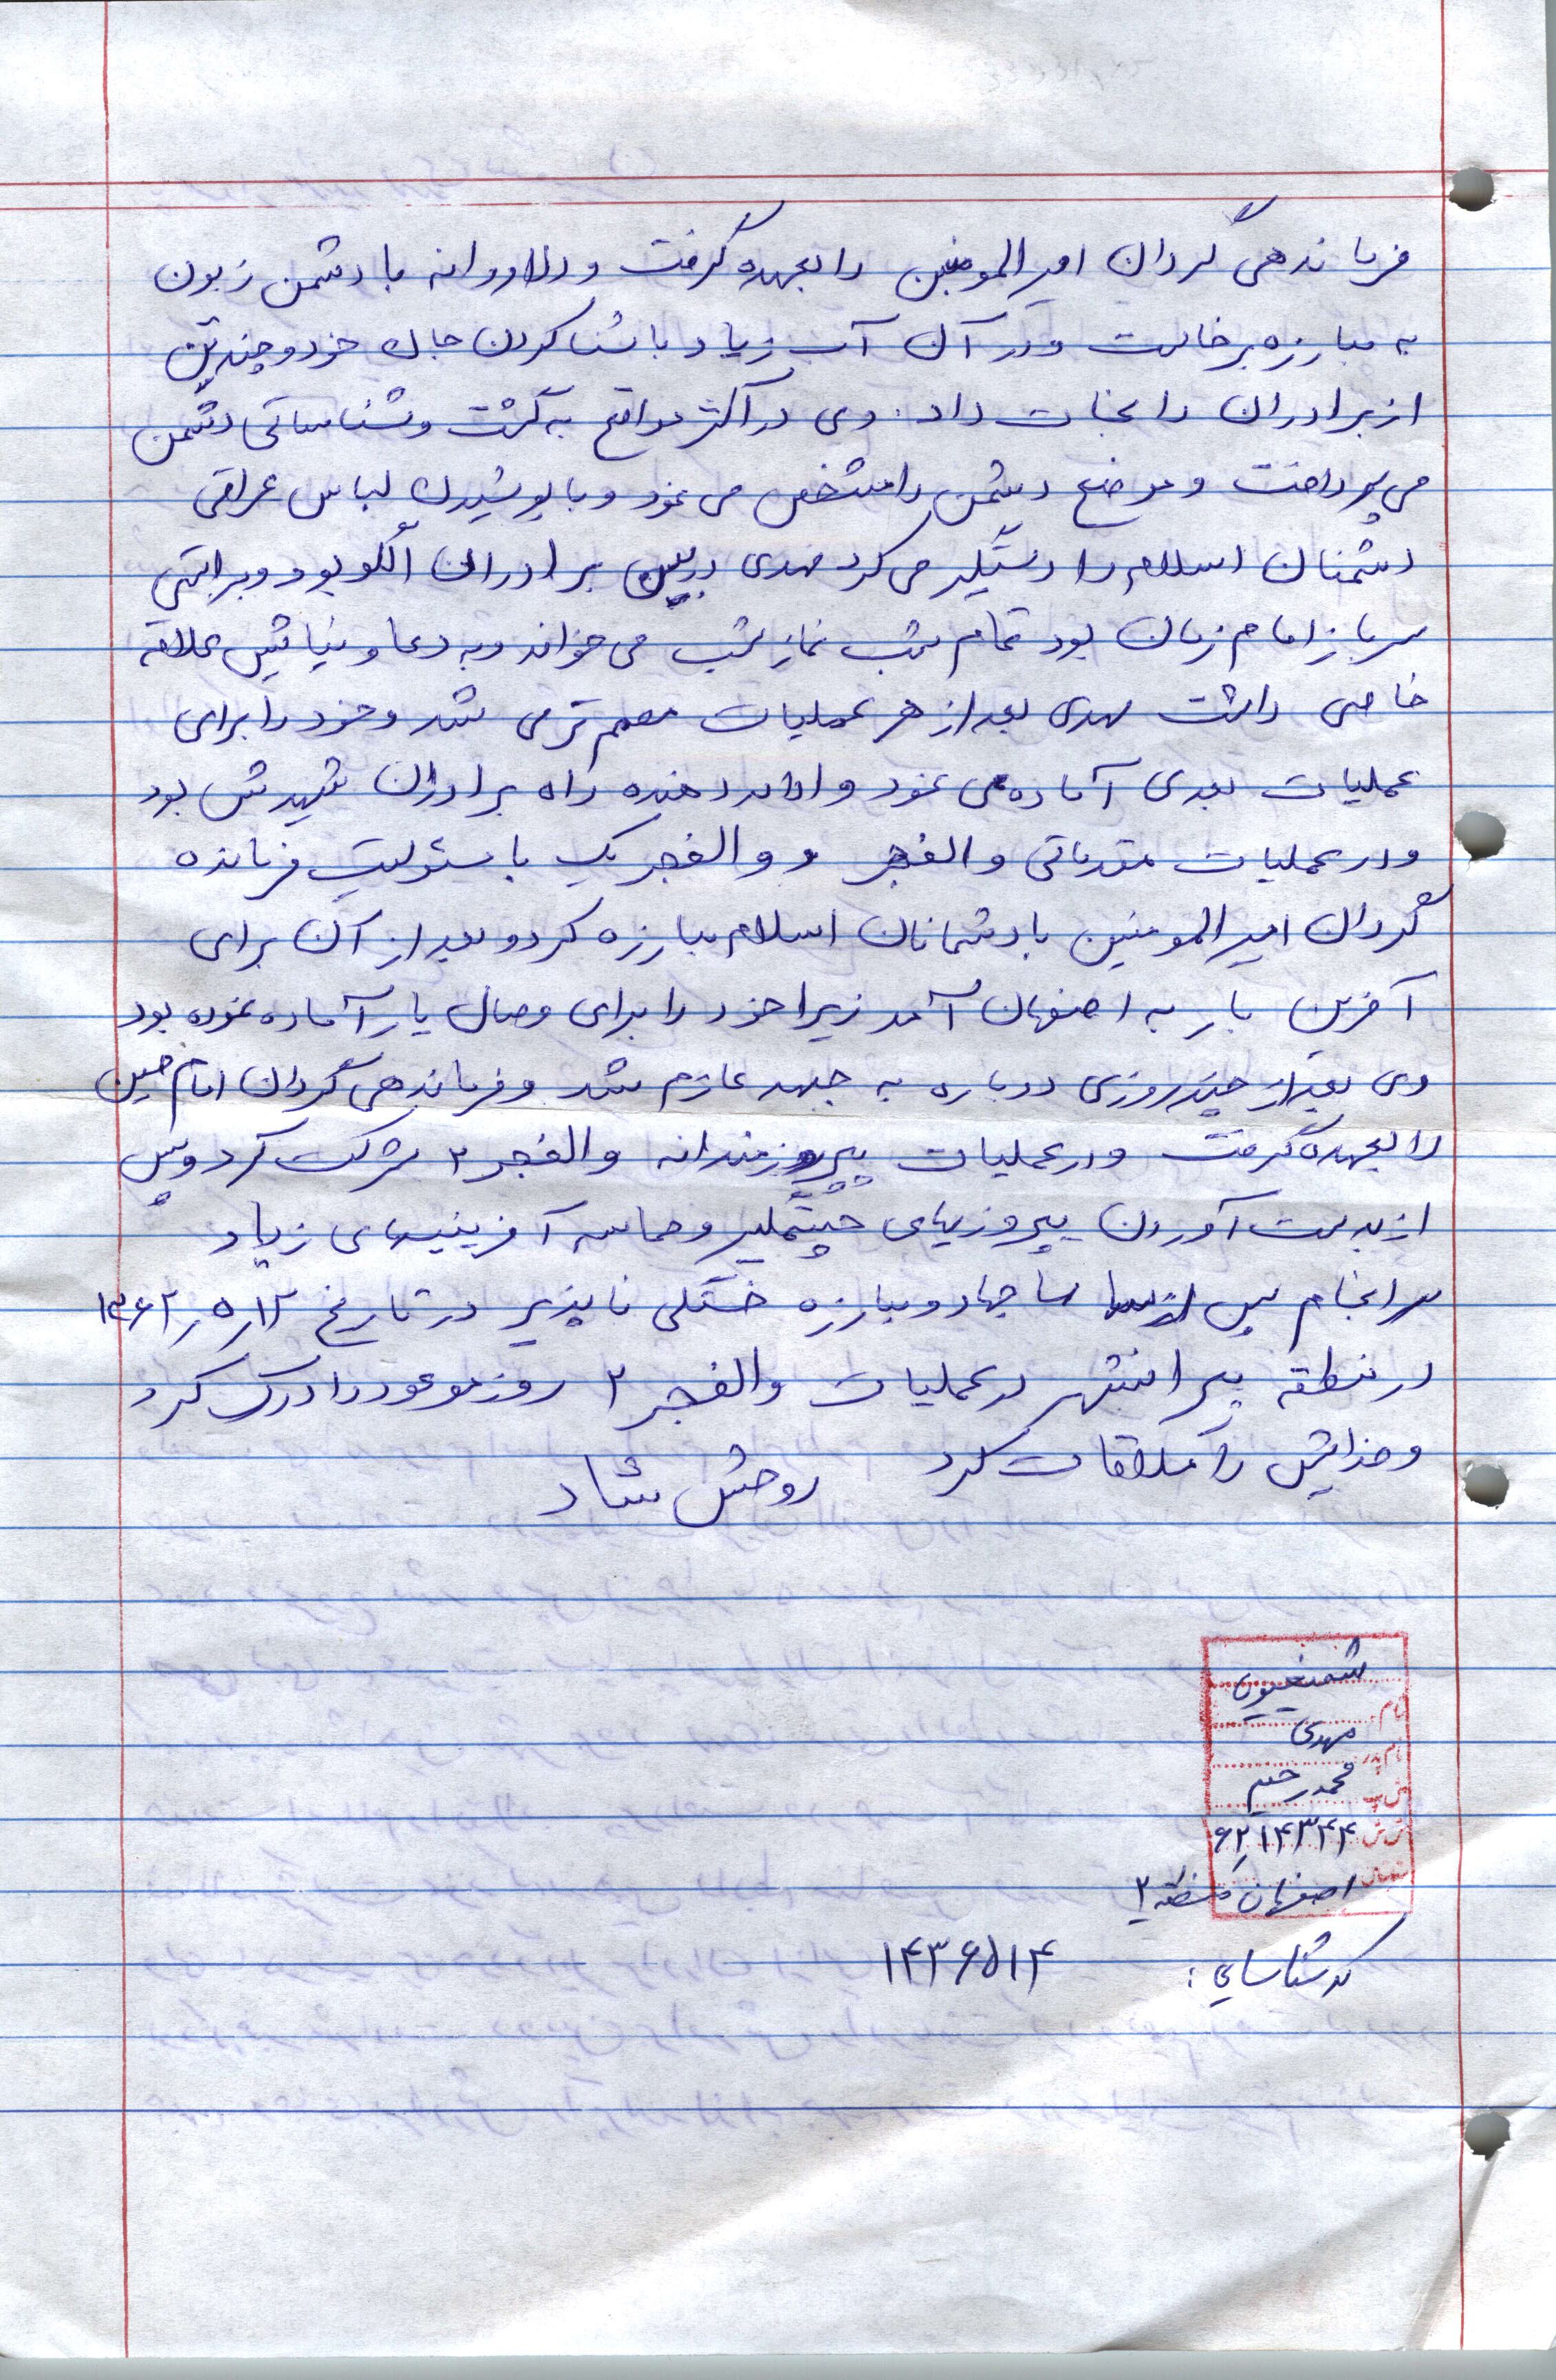 فرماندهی گردان امیر المومنین را بعهده گرفت و دلاورانه با دشمن زبون
به مبارزه برخاست ودر آن آب زیاد با شنا کردن جان خود و چندین
از برادران را نجات داد. وی در اکثر مواقع به گشت و شناسائی دشمن
می پرداخت و موضع دشمن را مشخص می نمود و با پوشیدن لباس عراقی
دشمنان اسلام را دستگیر می کرد مهدی در بین برادران الگو بود و براستی
سرباز امام زمان بود تمام شب نماز شب می خواند و به دعا و نیایش علاقه
خاصی داشت مهدی بعد از هر عملیات مصمم تر می شد و خود را برای
عملیات بعدی آماده می نمود و ادامه دهنده راه برادران شهیدش بود
ودر عملیات مقدماتی والفجر و والفجر یک با مسئولیت فرمانده
گردان امیر المومنین با دشمانان اسلام مبارزه کرد و بعد از آن برای
آخرین بار به اصفهان آمد زیرا خود را برای وصال یار آماده نموده بود
وی بعد از چند روزی دوباره به جبهه عازم شد و فرماندهی گردان امام حسین
را بعهده گرفت ودر عملیات پیروزمندانه والفجر ۲ شرکت کرد و پس
از بدست آوردن پیروزیهای چشمگیر و حماسه آفرینیهای زیاد
سرانجام پس از سالها جهاد و مبارزه خستگی ناپذیر در تاریخ ۱۲ر۵ر۱۳۶۲
در منطقه پیرانشهر در عملیات والفجر ۲ روز موعود را درک کرد
و خدایش را ملاقات کرد روحش شاد
شمیعیون
نام: مهدی
نام پدر: محمد رحیم
ش پ
ش ش ۶۲ر۱۴۳۴۴
استان اصفهان منطقه ۲
کد شناسایی: ۱۴۳۶۵۱۴